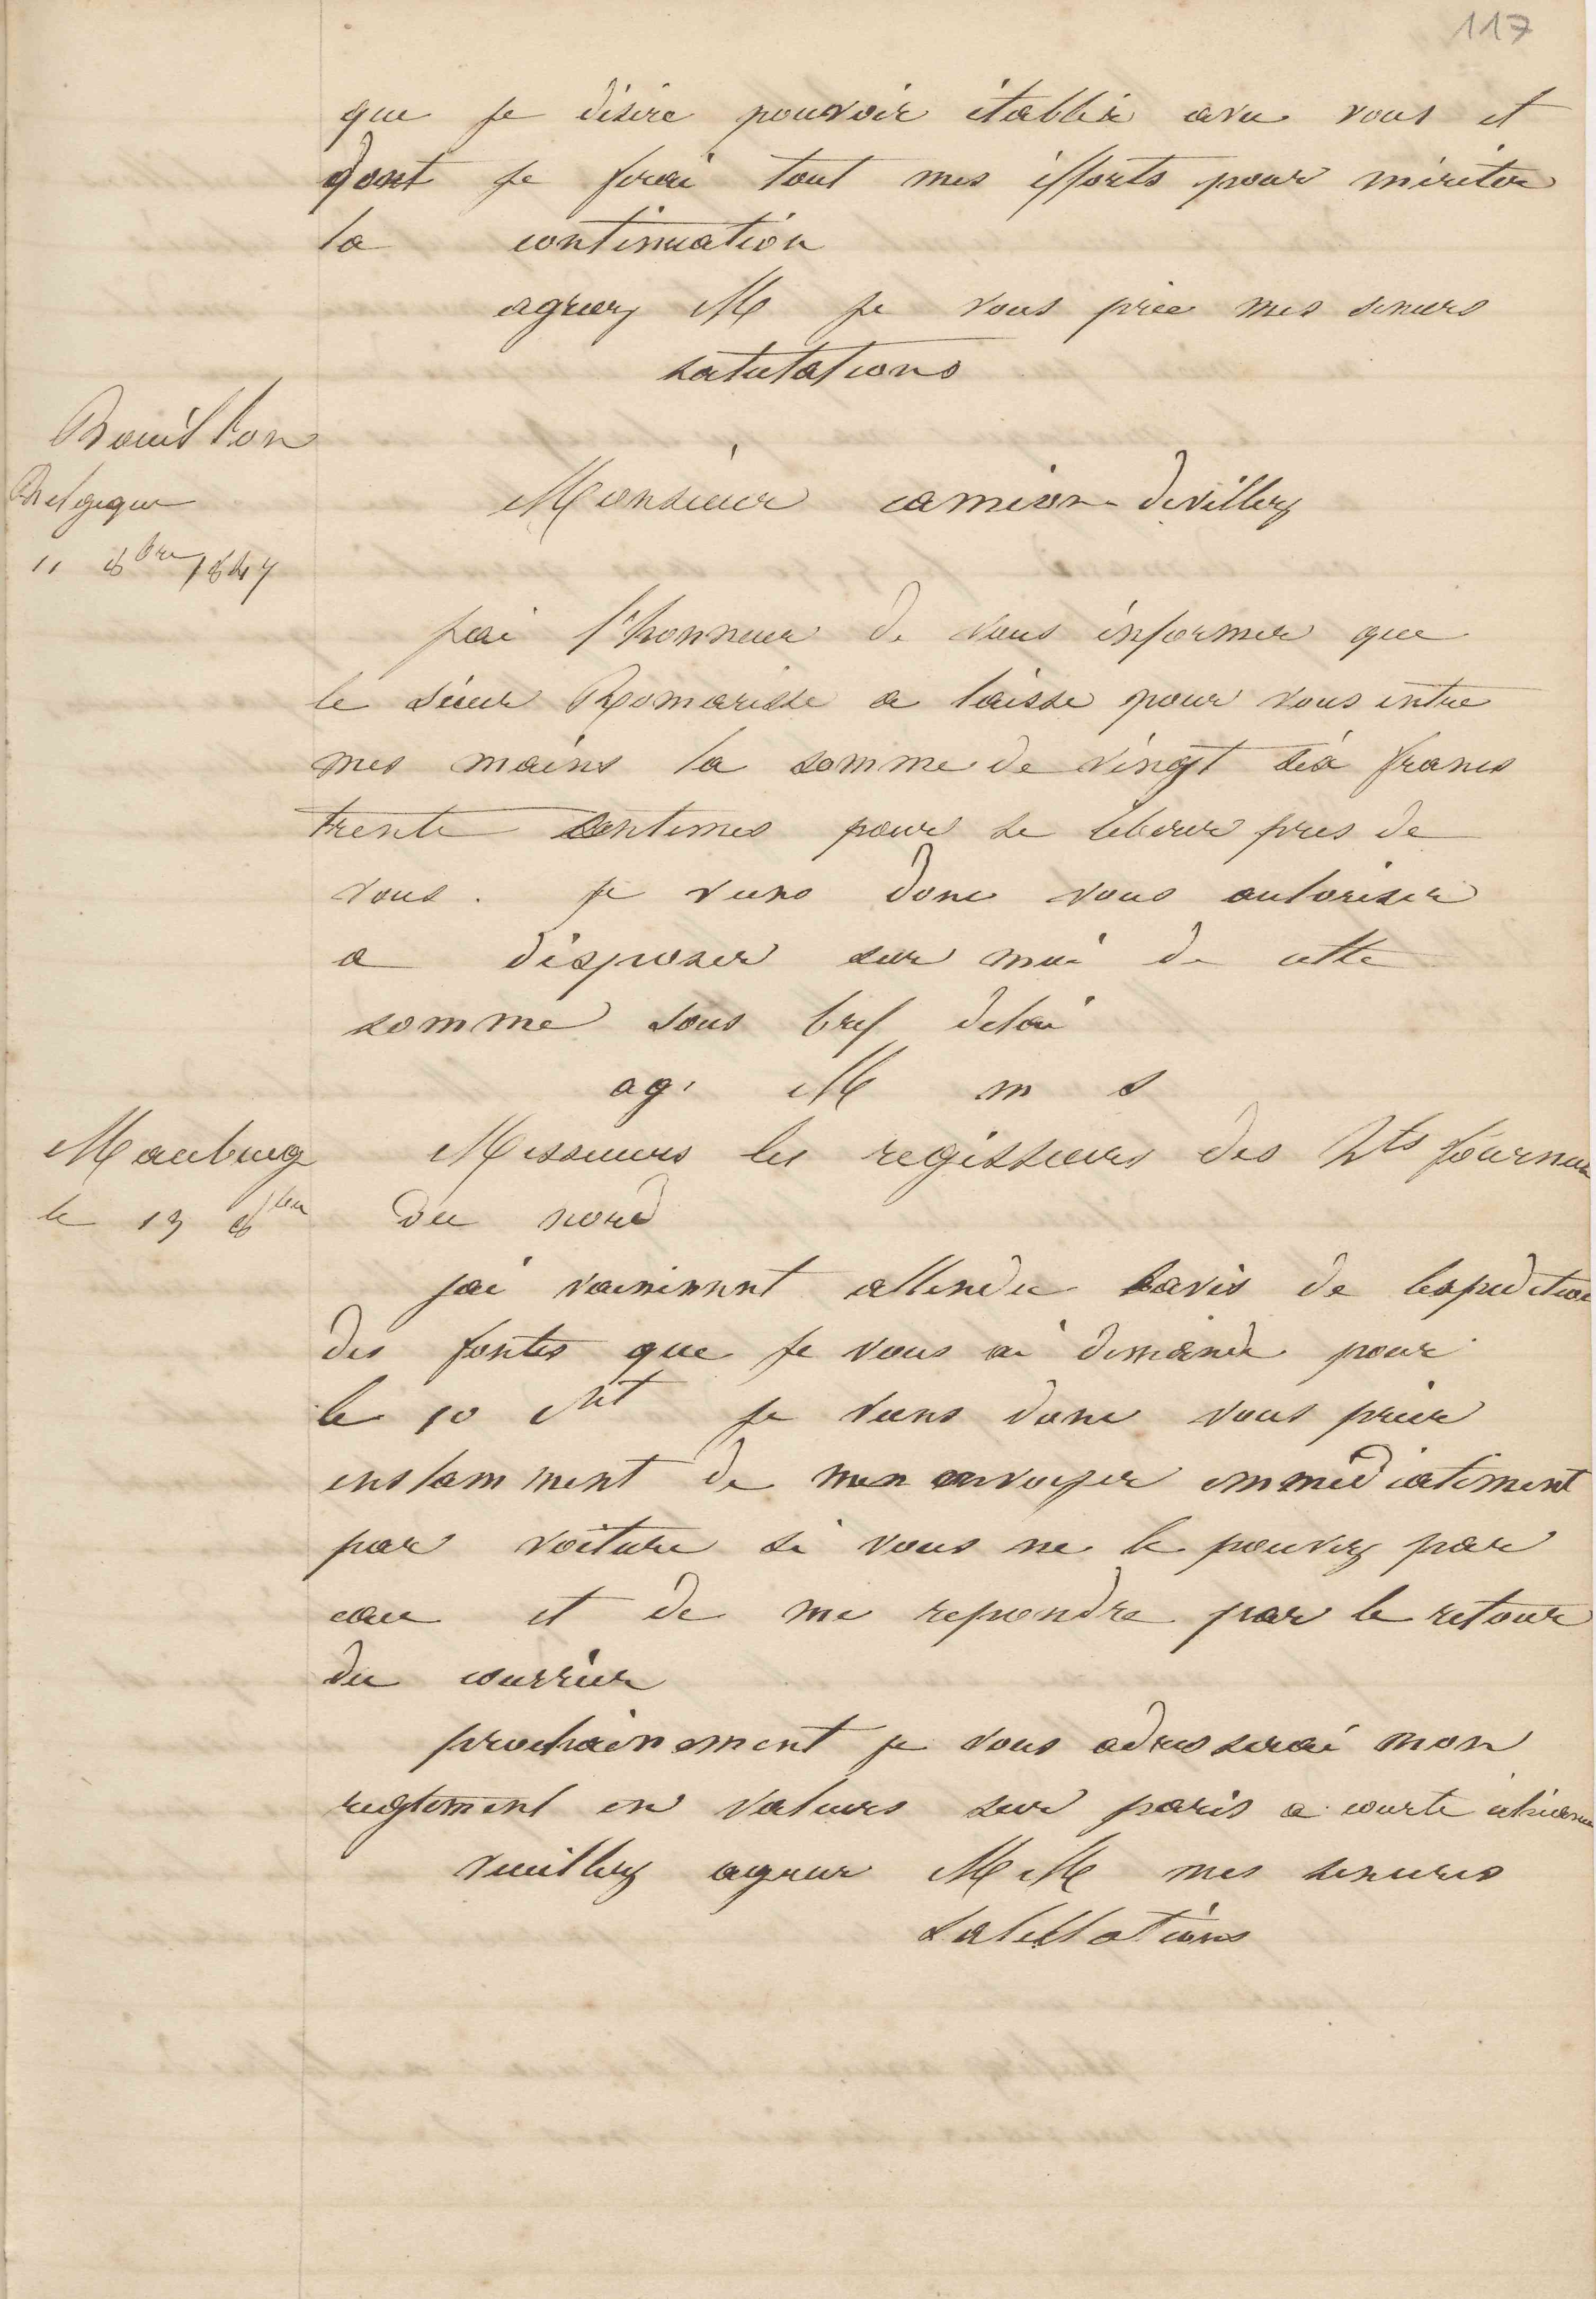 117
que je désire pouvoir établir avec vous et
dont je ferai tout mes efforts pour mériter
la continuation
agreez M je vous prie mes sincères
salutations
Bouillon
Belgique
11 8bre 1847
Monsieur camion devillez
j'ai l'honneur de vous informer que
le sieur Romarisse a laisse pour vous entre
mes mains la somme de vingt six francs
trente centimes pour se liberer pres de
vous. je viens donc vous autoriser
a disposer sur moi de cette
somme sous bref delai
ag. M m s
Maubeug
le 13 8bre
Messieurs les regisseurs des hts fourneaux
du nord
jai vainement attendu lavis de lexpedition
des fontes que je vous ai demandé pour
le 10 je viens donc vous prier
instamment de men envoyer immédiatement
par voiture si vous ne le pouvez par
eau et de me repondre par le retour
du courrier
prochainement je vous adresserai mon
reglement en valeurs sur paris a courte échéance
veuillez agreer MM mes sincères
salutations